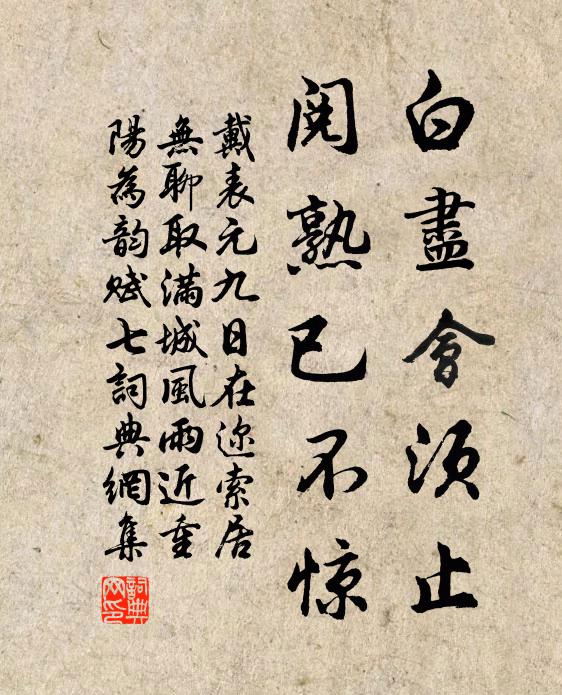 白盡會須止
閱熟已不惊
戴表元九日在迩索居
無聊取滿城風雨近重
陽為韵賦七詞典網集
詞典
网印